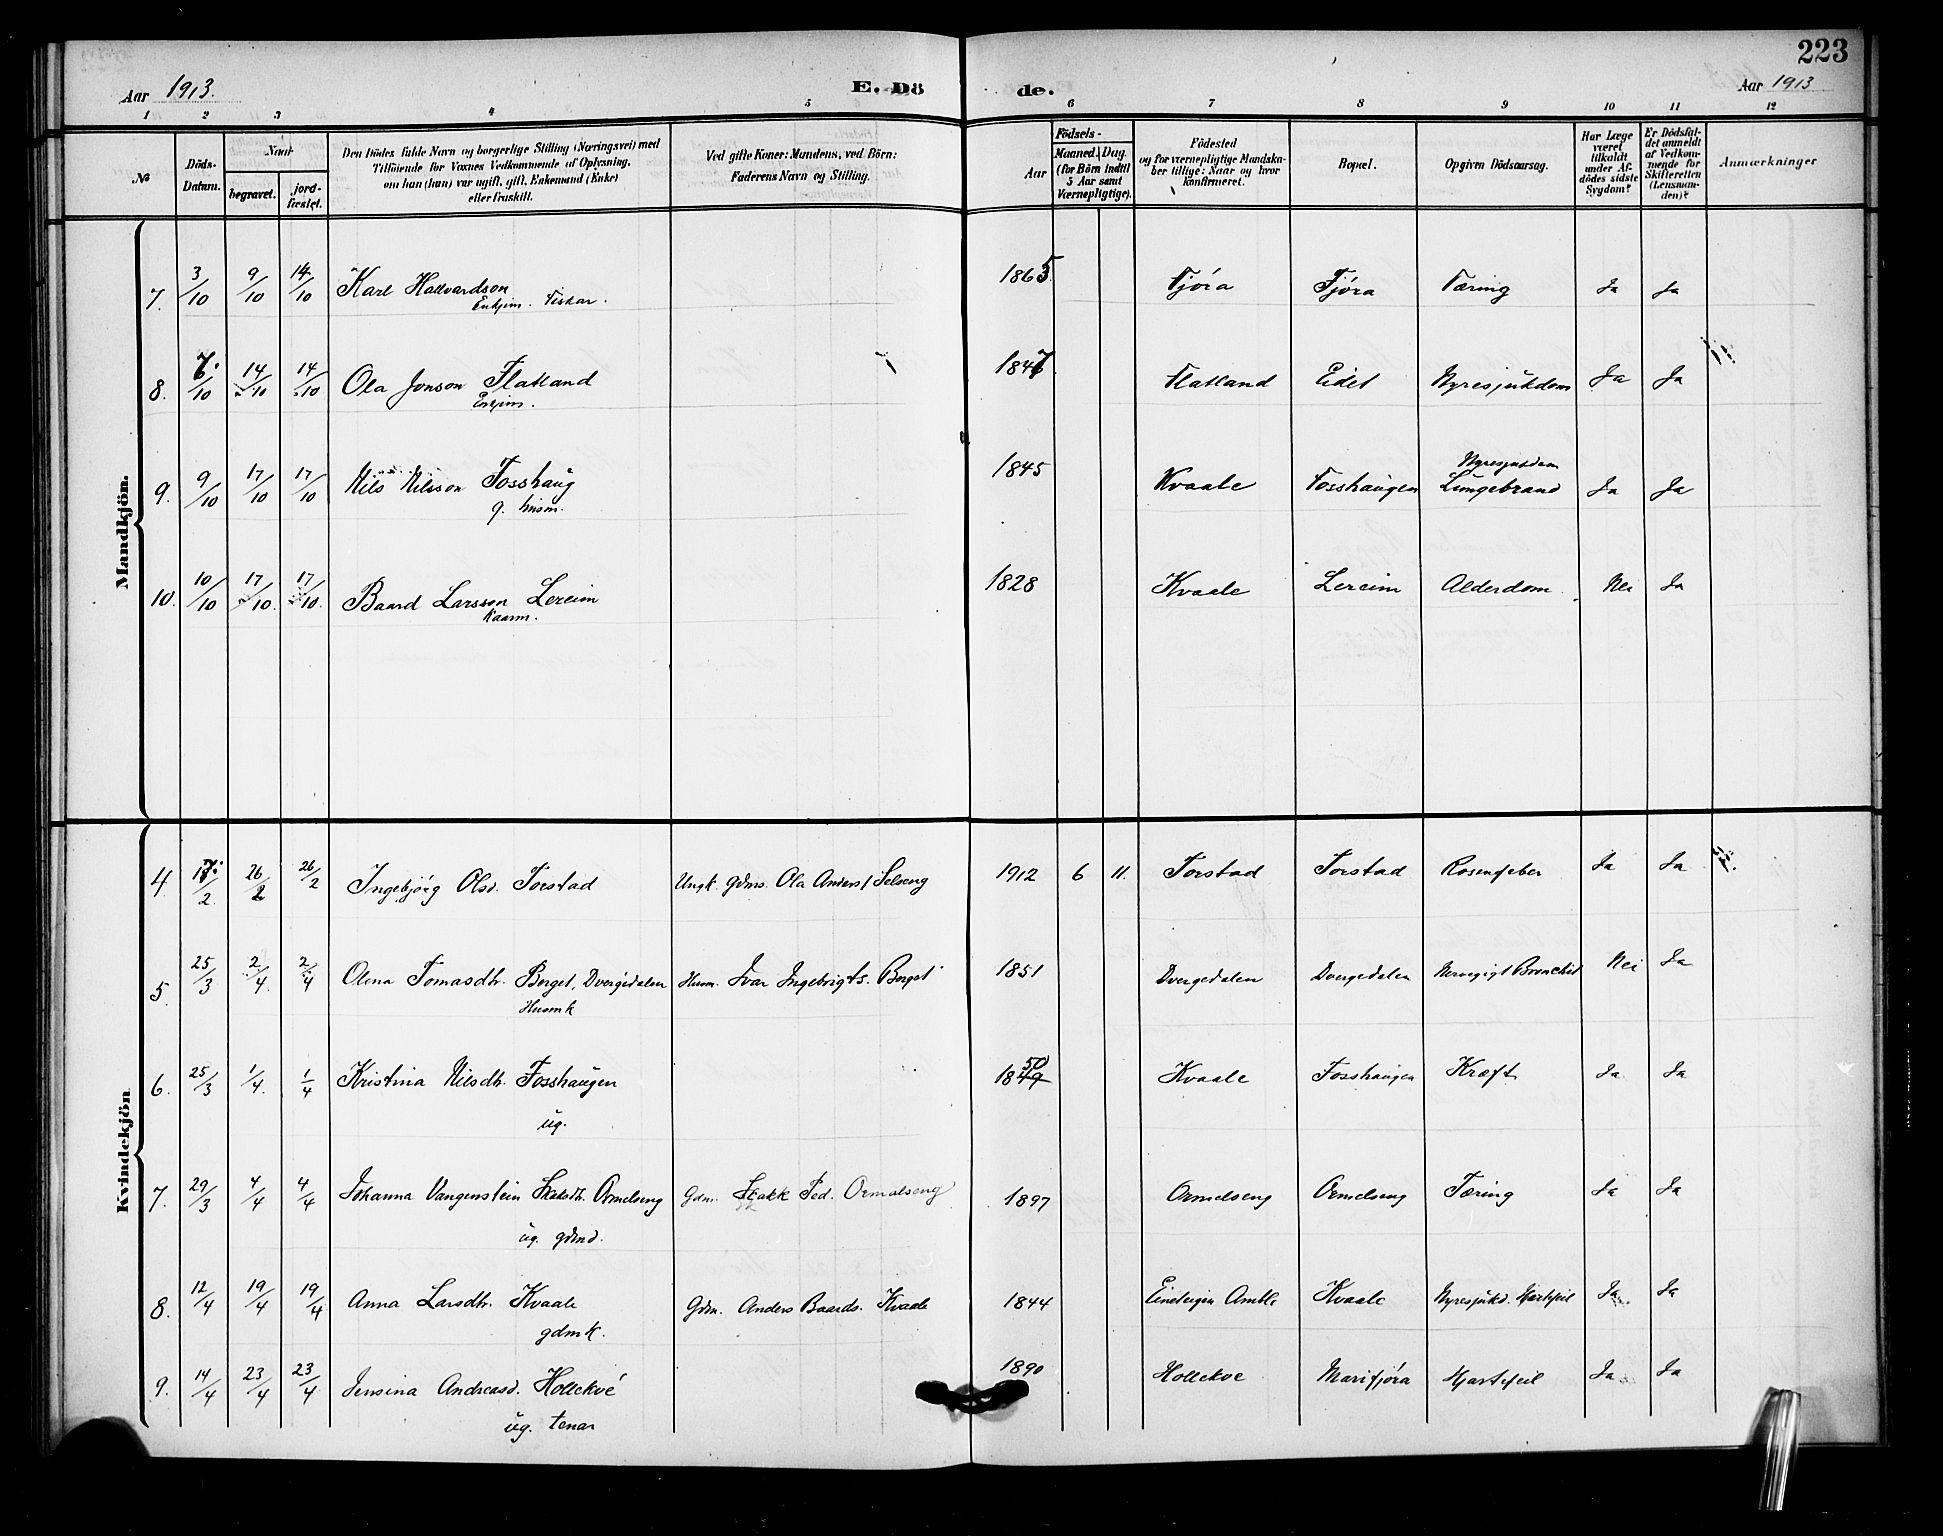 223
Aar 1913. E. Dö de. Aar 1913
1 2 3 4 5 6 7 8 9 10 11 12
№
Döds-Datum.
Naar
begravet.
jord-fæstet.
Den Dödes fulde Navn og borgerlige Stilling (Næringsvei) med
Tilföiende for Voxnes Vedkommende af Oplysning,
om han (hun) var ugift, gift, Enkemand (Enke)
eller fraskilt.
Ved gifte Koner: Mandens, ved Börn:
Faderens Navn og Stilling.
Födsels-
Aar
Maaned. Dag.
(for Börn indtil
5 Aar samt
Værnepligtige).
Födested
og for værnepligtige Mandska-
ber tillige: Naar og hvor
konfirmeret.
Bopæl.
Opgiven Dödsaarsag.
Har Læge
været
tilkaldt
under Af-
dödes sidste
Sygdom?
Er Dödsfal-
det anmeldt
af Vedkom-
mende for
Skifteretten
(Lensman-
den)?
Anmærkninger
Mandkjön.
7. 3/10 9/10 14/10 Karl Hallvardson 1865 Fjöra Fjöra Tæring Ja Ja
Enkjem. Fiskar.
8. 7/10 14/10 14/10 Ola Jonson Flatland 1847 Flatland Eidet Nyresjukdom Ja Ja
Enkjem.
9. 9/10 17/10 17/10 Nils Nilsson Fosshaug 1845 Kvaale Fosshaugen Nyresjukdom Lungebrand Ja Ja
g. husm.
10. 10/10 17/10 17/10 Baard Larsson Lereim 1828 Kvaale Lereim Alderdom Nei Ja
Kaarm.
Kvindekjön
4 17/2 26/2 26/2 Ingebjörg Olsd. Torstad Ungk. gdms. Ola Anders. Selseng 1912 6 11. Torstad Torstad Rosenfeber Ja Ja
5. 25/3 2/4. 2/4 Olina Tomasdtr. Berget, Dvergedalen Husm. Ivar Ingebrigts. Berget 1851 Dvergedalen Dvergedalen Bronchit Nei Ja
Husmk
6. 25/3 1/4. 1/4 Kristina Nilsdtr. Fosshaugen 1849 50 Kvaale Fosshaugen Kræft Ja Ja
ug.
7. 29/3 4/4 4/4 Johanna Vangenstein Skaksdtr. Ormelseng Gdm. Skakk Ped. Ormelseng 1897 Ormelseng Ormelseng Tæring Ja Ja
ug. gdmd.
8. 12/4 19/4 19/4 Anna Larsdtr. Kvaale Gdm. Anders Baards. Kvaale 1844 Eindregin Amble Kvaale Nyresjukd. Hjartefeil Ja. Ja
gdmk.
9. 14/4 23/4 23/4 Jensina Andreasd. Hollekve 1890 Hollekve Marifjöra Hjartefeil Ja Ja
ug. tenar